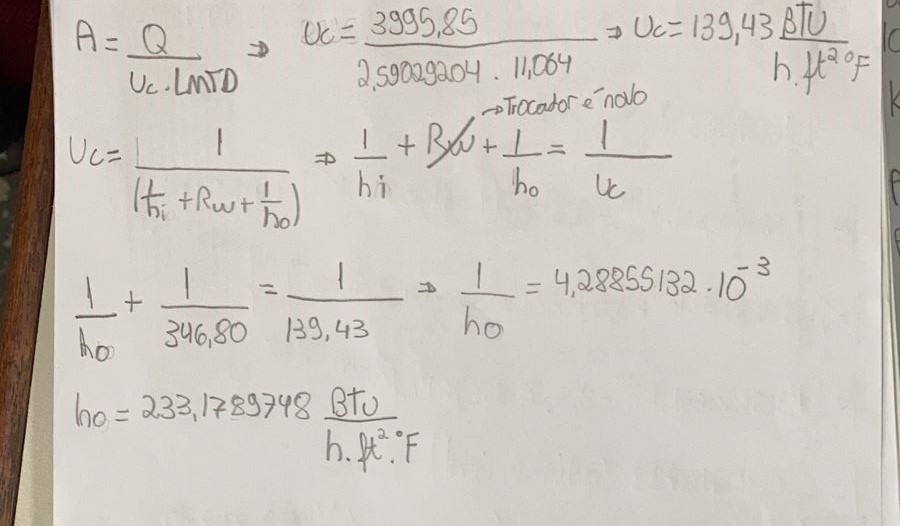 A = Q / Uc . LMTD ⇒ Uc = 3995,85 / 2,59029204 . 11,064 ⇒ Uc = 139,43 BTU / h.ft² °F
→Trocador é novo
Uc = 1 / (1/hi + Rw + 1/ho) ⇒ 1/hi + Rw + 1/ho = 1/Uc
1/ho + 1/346,80 = 1/139,43 ⇒ 1/ho = 4,28855132 . 10⁻³
ho = 233,1789748 BTU / h.ft².°F